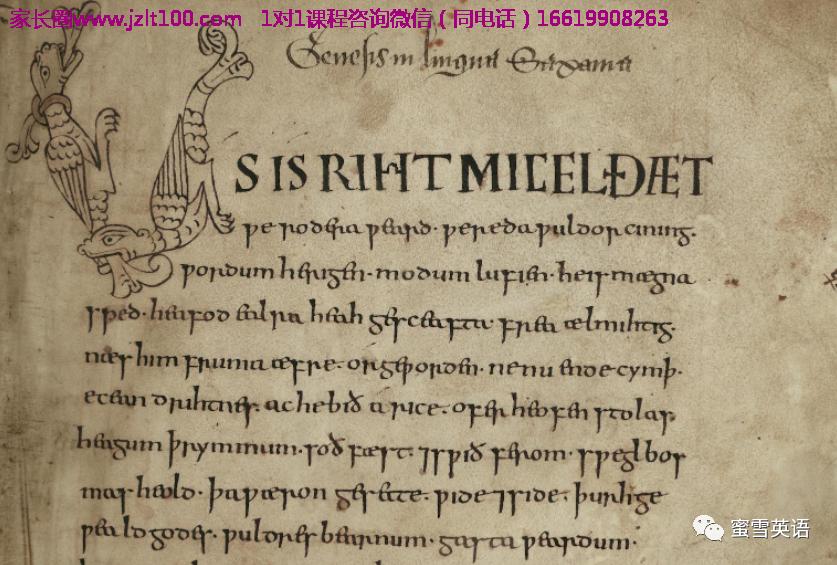 家长圈www.jzlt100.com 1对1课程咨询微信（同电话）16619908263
Genesis in lingua Saxania
US IS RIHT MICEL ÐÆT
ƿe rodera ƿeard· ƿereda ƿuldor cining·
ƿordum herigen· modum lufien· he is mægna
sped· heafod ealra heah gesceafta· frea ælmihtig·
næs him fruma æfre· or geƿorden· ne nu ende cymþ·
ecean drihtnes· ac he bið a rice· ofer heofen stolas·
heagum þrymmum· soð fæst· ⁊ sƿið ferom· sƿegl bos
mas heold· þa ƿæron gesette· ƿide ⁊ side· þurh ge
ƿeald godes· ƿuldres bearnum· gasta ƿeardum·
蜜雪英语